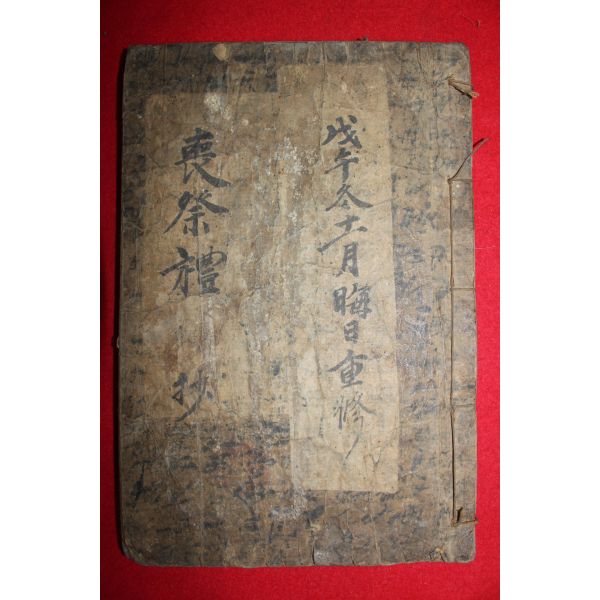 戊午冬十一月晦日重修
喪祭禮 抄